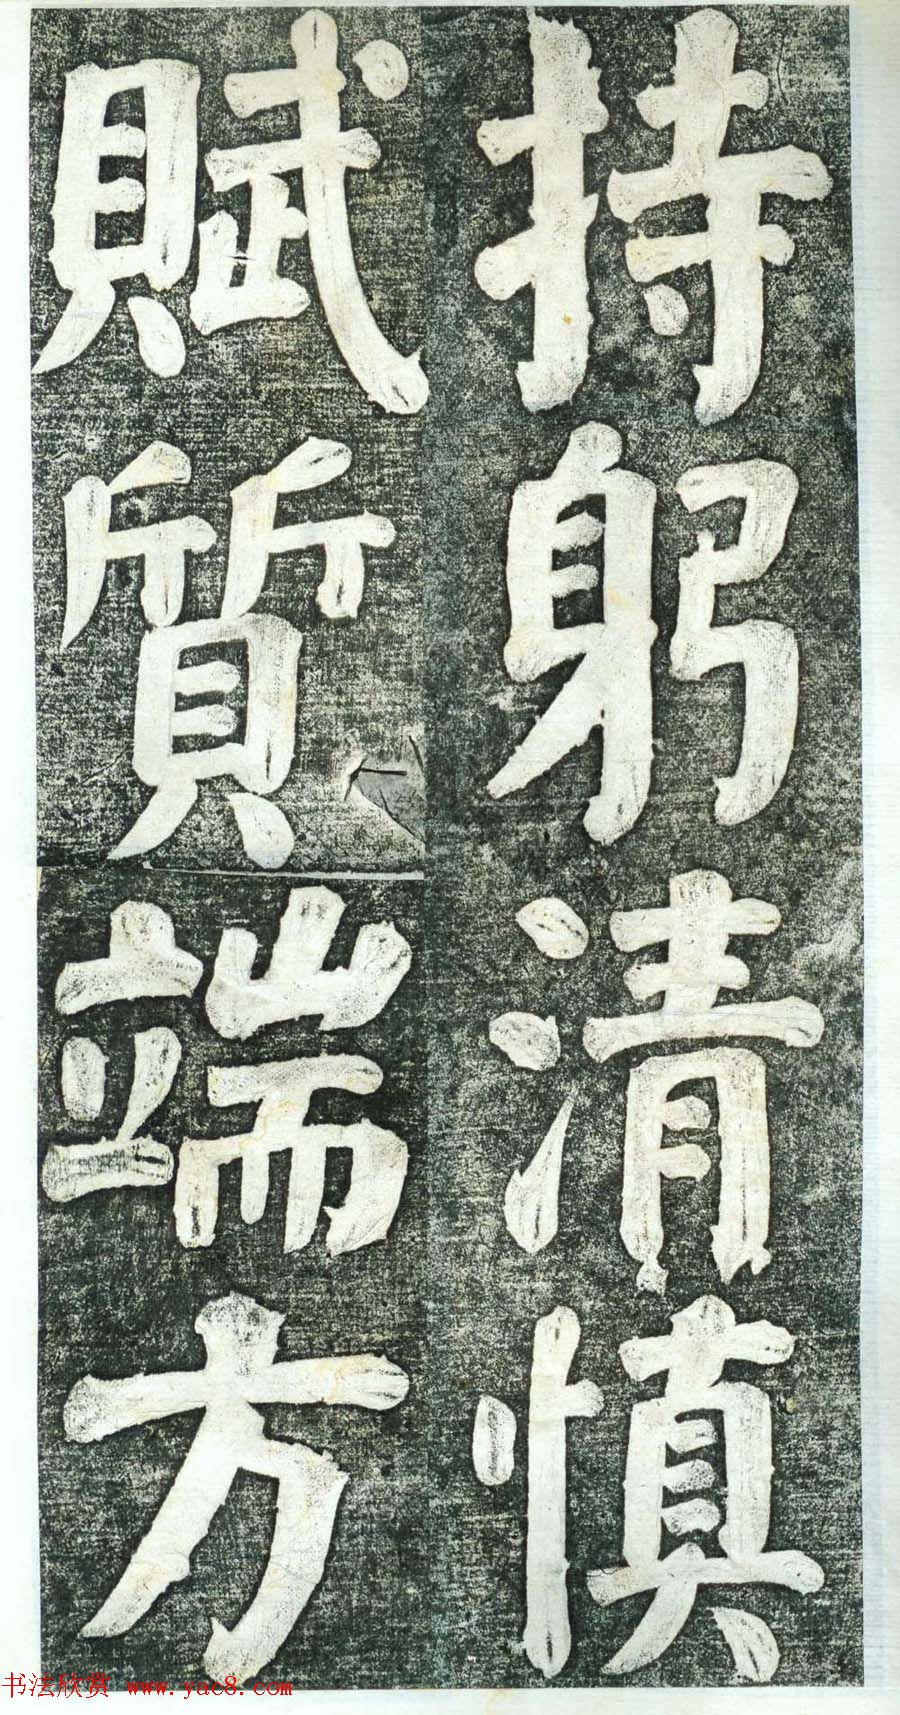 持躬清慎
賦質端方
书法欣赏 www.yac8.com